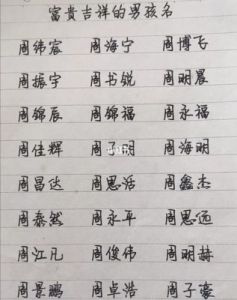 富贵吉祥的男孩名
周纬宸 周海宁 周博飞
周振宇 周书锐 周明晨
周锦辰 周锦福 周永福
周佳辉 周子明 周海明
周昌达 周思浩 周鑫杰
周泰然 周永平 周思远
周江凡 周俊伟 周明赫
周景鹏 周卓浩 周子豪